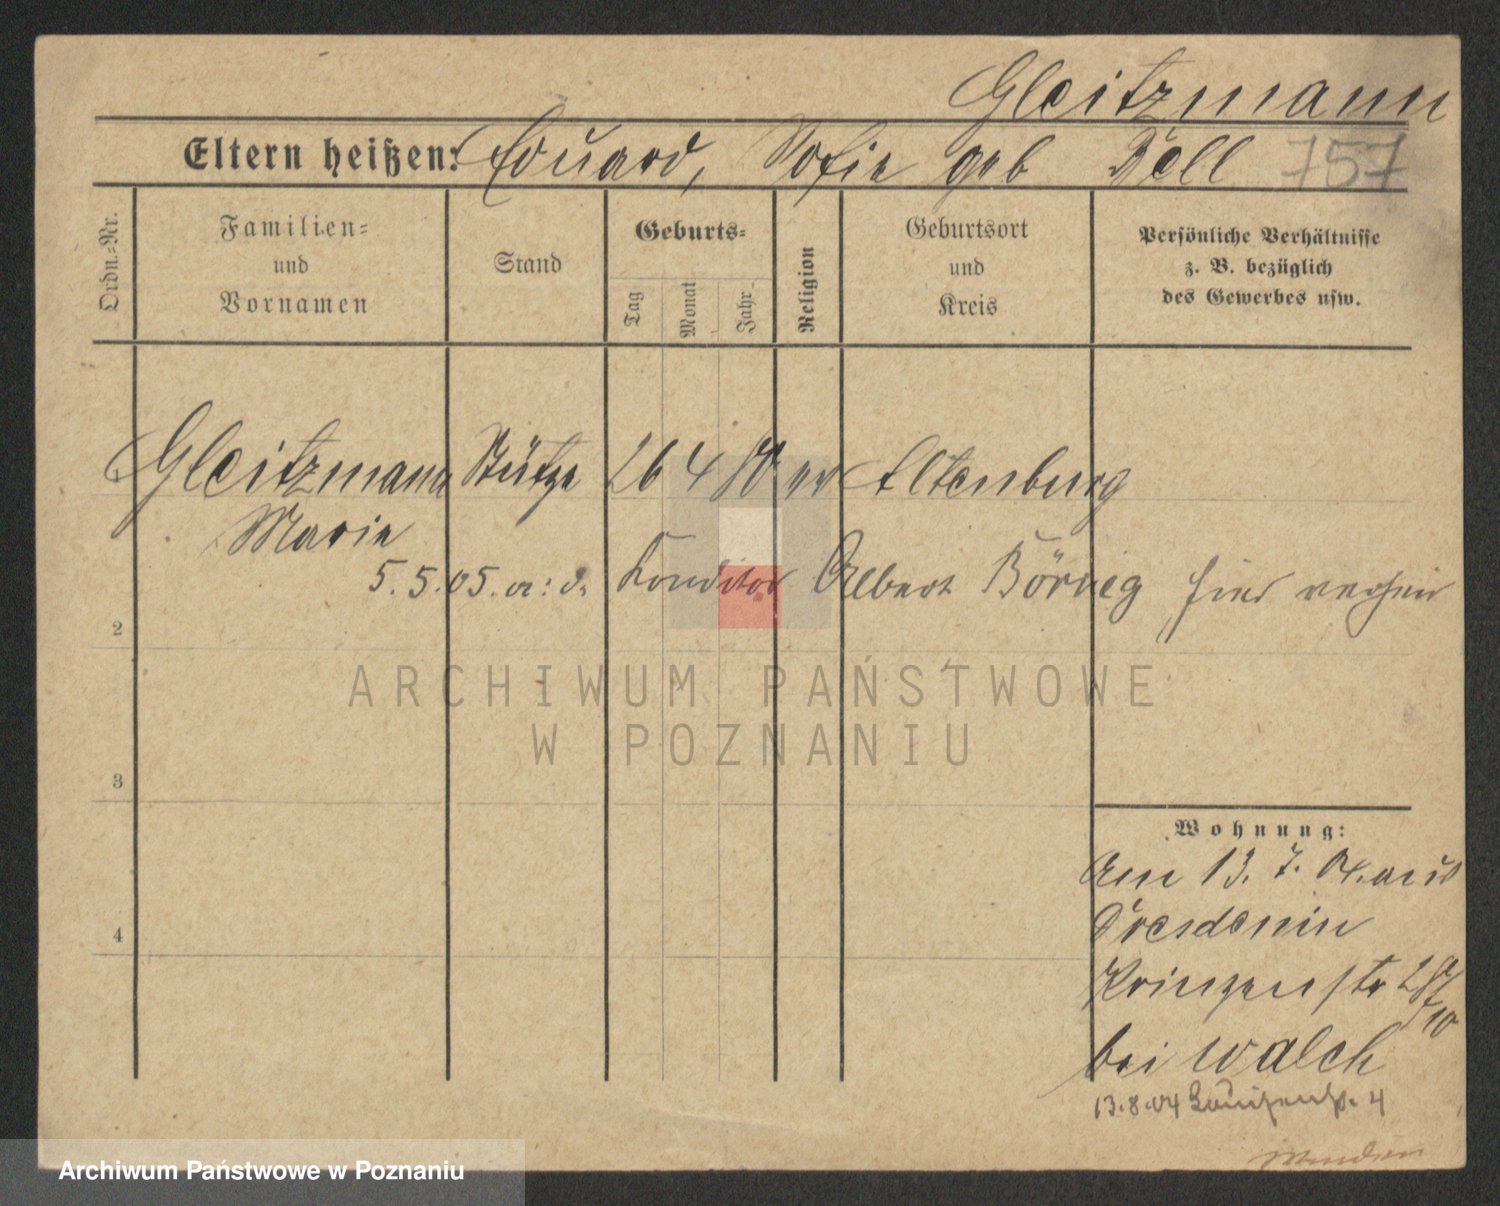 Gleitzmann
Eltern heißen: Eduard, Sofie geb Dell 757
Ordn.-Nr.
Familien-
und
Vornamen
Stand
Geburts-
Tag
Monat
Jahr
Religion
Geburtsort
und
Kreis
Persönliche Verhältnisse
z. B. bezüglich
des Gewerbes usw.
Gleitzmann Stütze 26 4 80 ev Altenburg
Marie
5.5.05. m: d. Konditor Albert Börneg hier
2
ARCHIWUM PAŃSTWOWE
W POZNANIU
3
Wohnung:
Am 13. 7. 04. aus
4
Dresden in
bei Walch
13.8.04 4
Archiwum Państwowe w Poznaniu